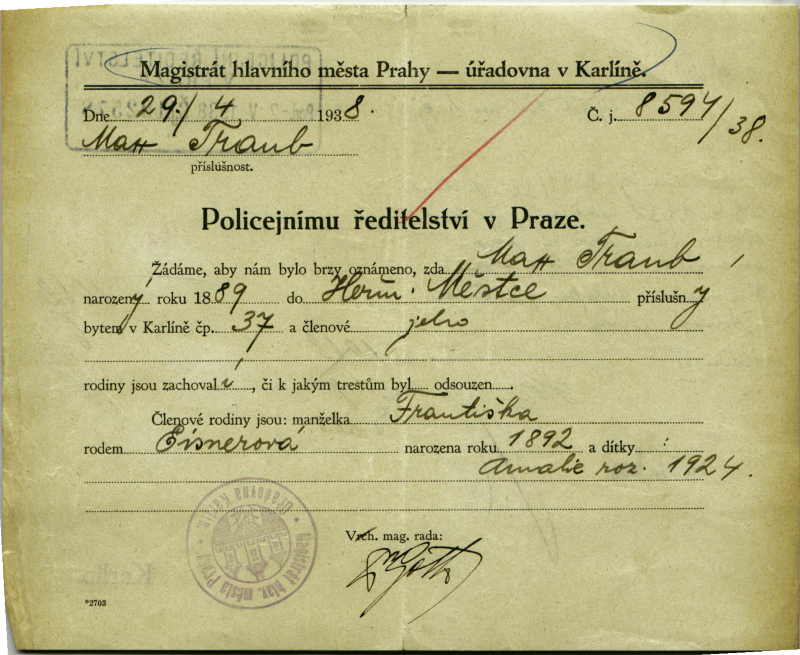 Magistrát hlavního města Prahy — úřadovna v Karlíně.
Dne 29./4 1938. Č. j. 8594/38.
Max Traub
příslušnost.
Policejnímu ředitelství v Praze.
Žádáme, aby nám bylo brzy oznámeno, zda Max Traub,
narozený roku 1889 do Heřm. Městce příslušný
bytem v Karlíně čp. 37 a členové jeho
rodiny jsou zachovalí, či k jakým trestům byl odsouzen.
Členové rodiny jsou: manželka Františka
rodem Eisnerová narozena roku 1892 a dítky:
Amalie roz. 1924.
Vrch. mag. rada:
Magistrát hlav. města Prahy
Úřadovna Karlín
*2703